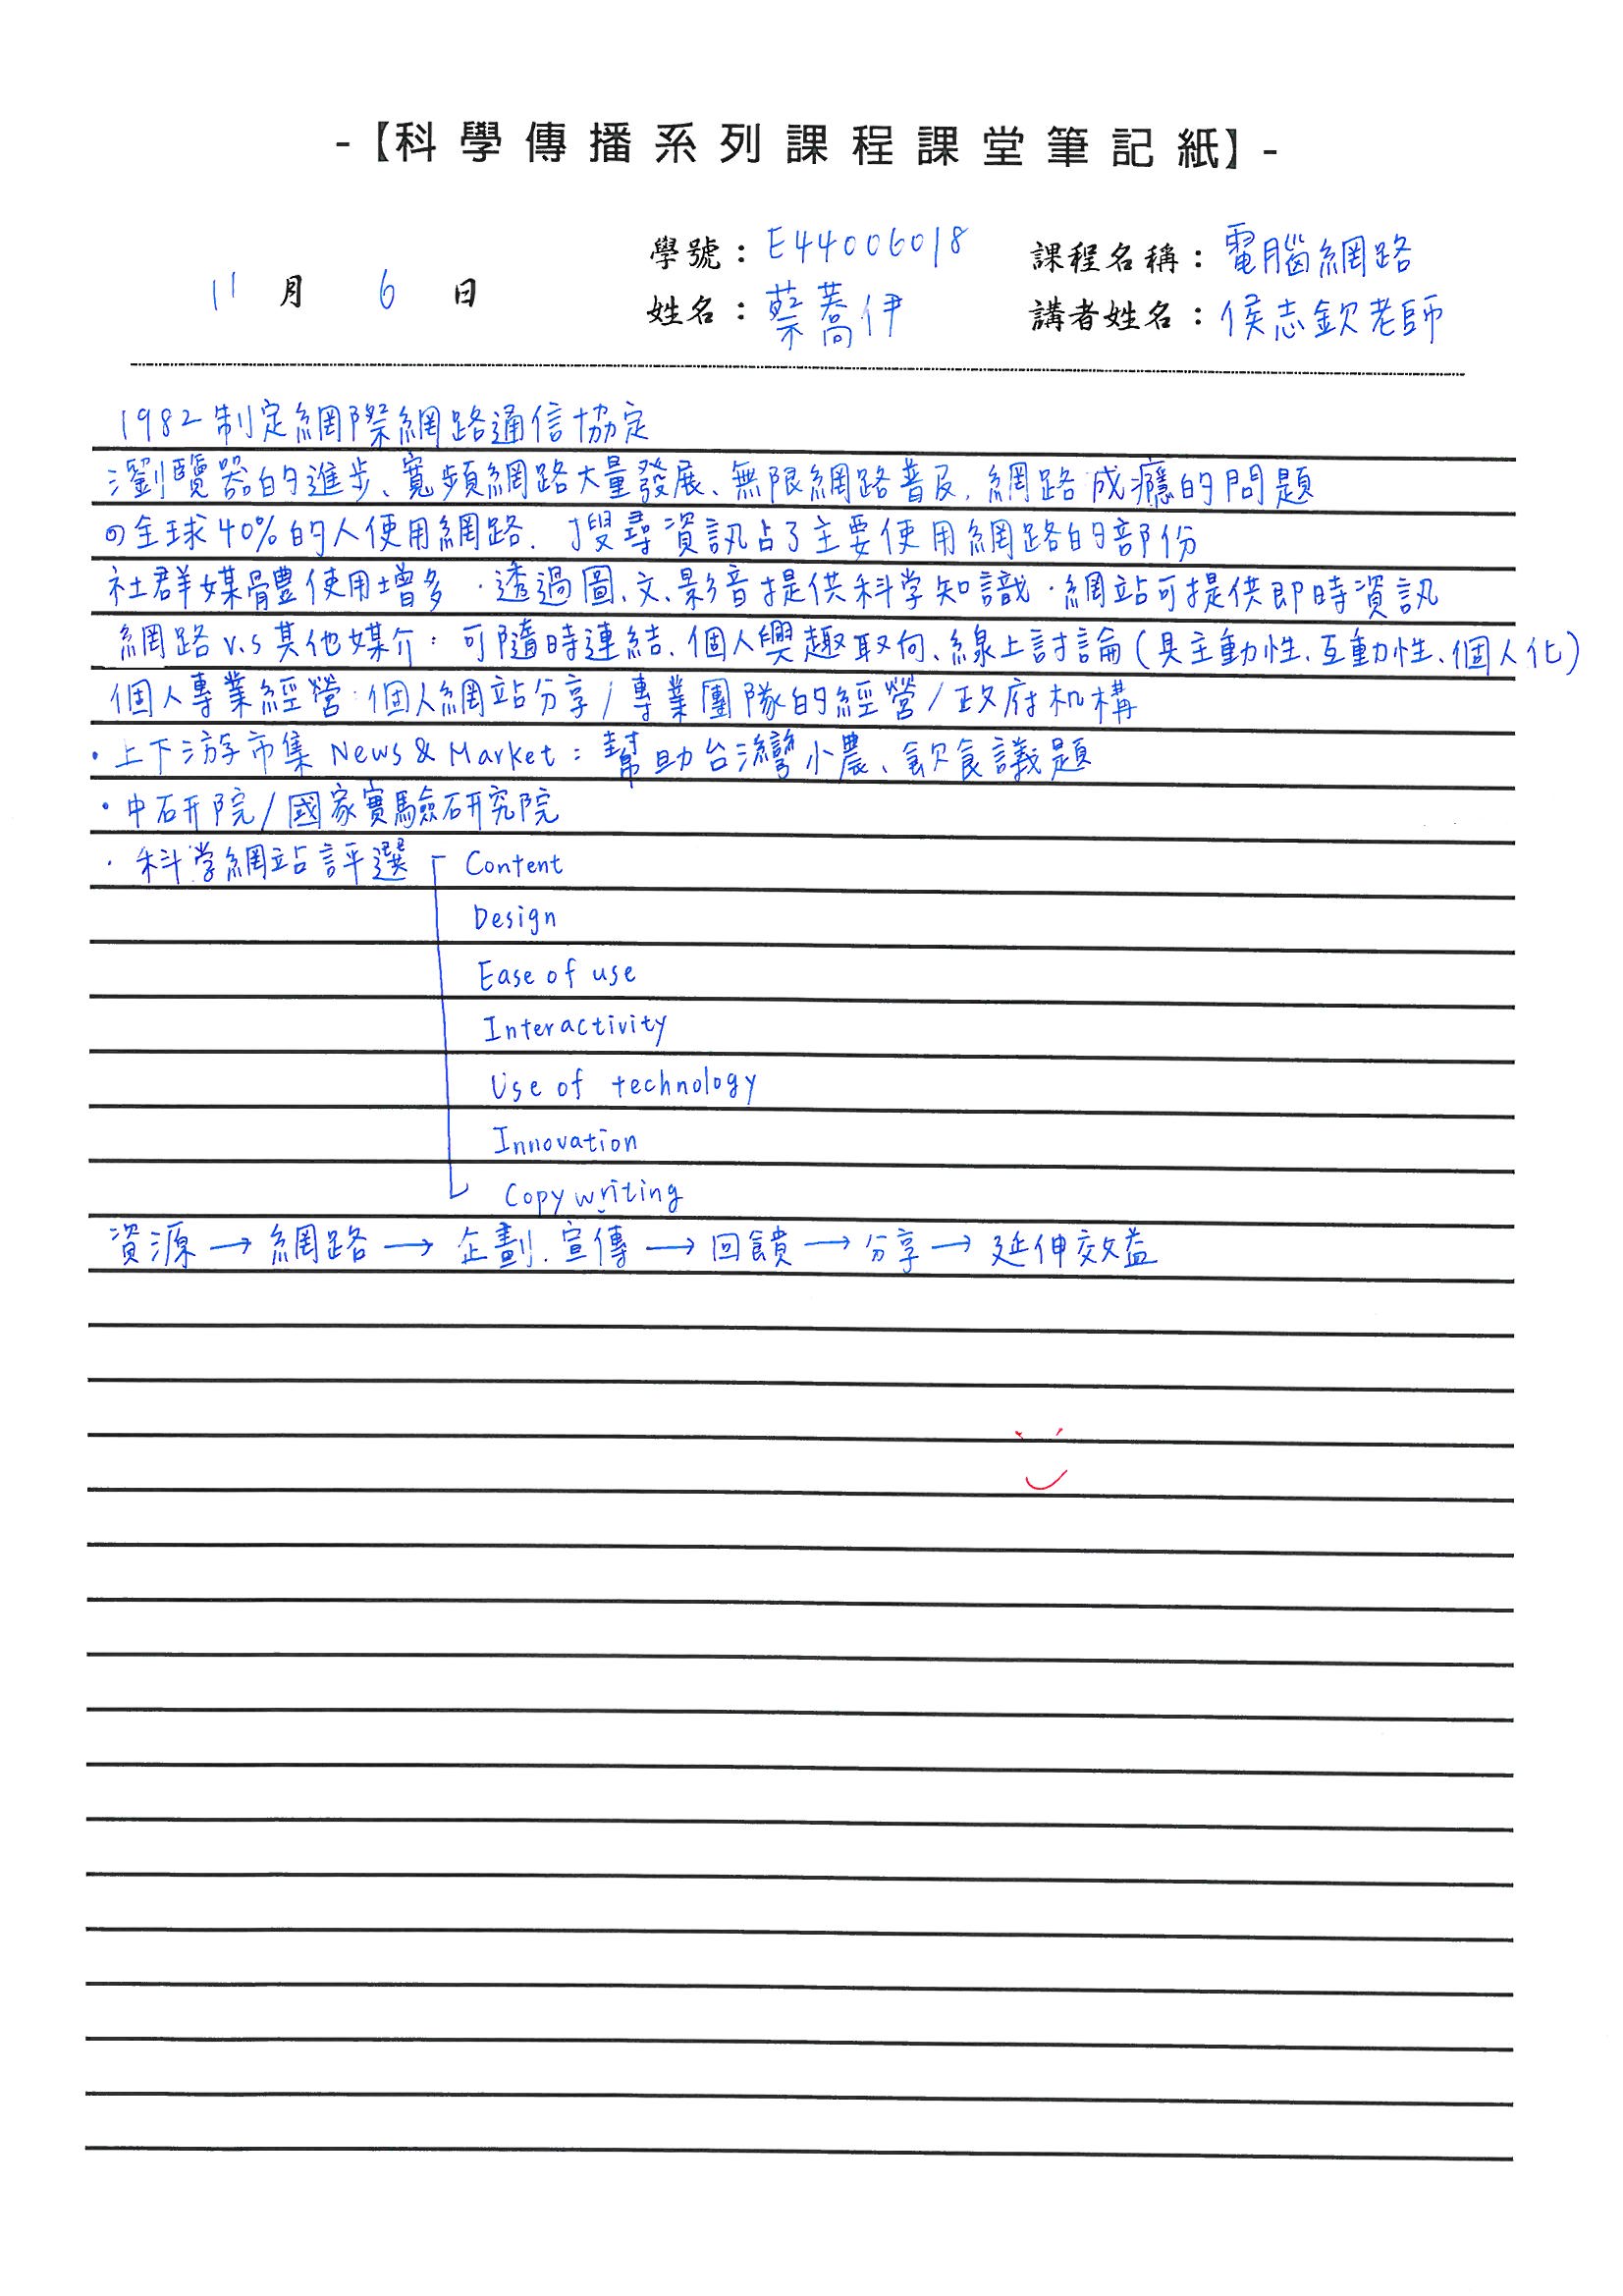 -【科學傳播系列課程課堂筆記紙】-
學號：E44006018 課程名稱：電腦網路
11月6日 姓名：蔡蕎伊 講者姓名：侯志欽老師
1982制定網際網路通信協定
瀏覽器的進步、寬頻網路大量發展、無限網路普及，網路成癮的問題
全球40%的人使用網路．搜尋資訊占了主要使用網路的部份
社群媒體使用增多．透過圖、文、影音提供科学知識．網站可提供即時資訊
網路v.s其他媒介：可隨時連結、個人興趣取向、線上討論(具主動性、互動性、個人化)
個人專業經營：個人網站分享/專業團隊的經營/政府机構
・上下游市集 News & Market：幫助台灣小農、飲食議題
・中研院/國家實驗研究院
・科学網站評選 Content
Design
Ease of use
Interactivity
Use of technology
Innovation
Copywriting
資源→網路→企劃．宣傳→回饋→分享→延伸效益